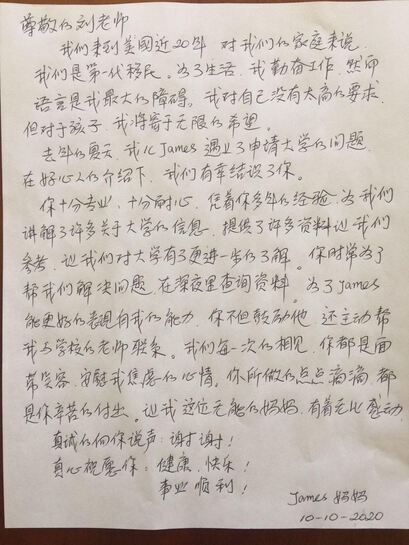 尊敬的刘老师
我们来到美國近20年 对我们的家庭来说,
我们是第一代移民。为了生活, 我勤奋工作, 然而
语言是我最大的障碍。我对自己没有太高的要求,
但对于孩子, 我将寄于无限的希望。
去年的夏天, 我儿James遇上了申请大学的问题,
在好心人的介绍下, 我们有幸结识了你。
你十分专业, 十分耐心, 凭着你多年的经验, 为我们
讲解了许多关于大学的信息, 提供了许多资料让我们
参考, 让我们对大学有了更进一步的了解。你时常为了
帮我们解决问题, 在深夜里查询资料。为了James
能更好的表现自我的能力, 你不但鼓励他, 还主动帮
我与学校的老师联系。我们每一次的相见, 你都是面
带笑容, 安慰我焦虑的心情。你所做的点点滴滴, 都
是你辛苦的付出。让我这位无能的妈妈, 有着无比感动.
真诚的向你说声: 谢谢!
真心祝愿你: 健康、快乐!
事业顺利!
James 妈妈
10-10-2020